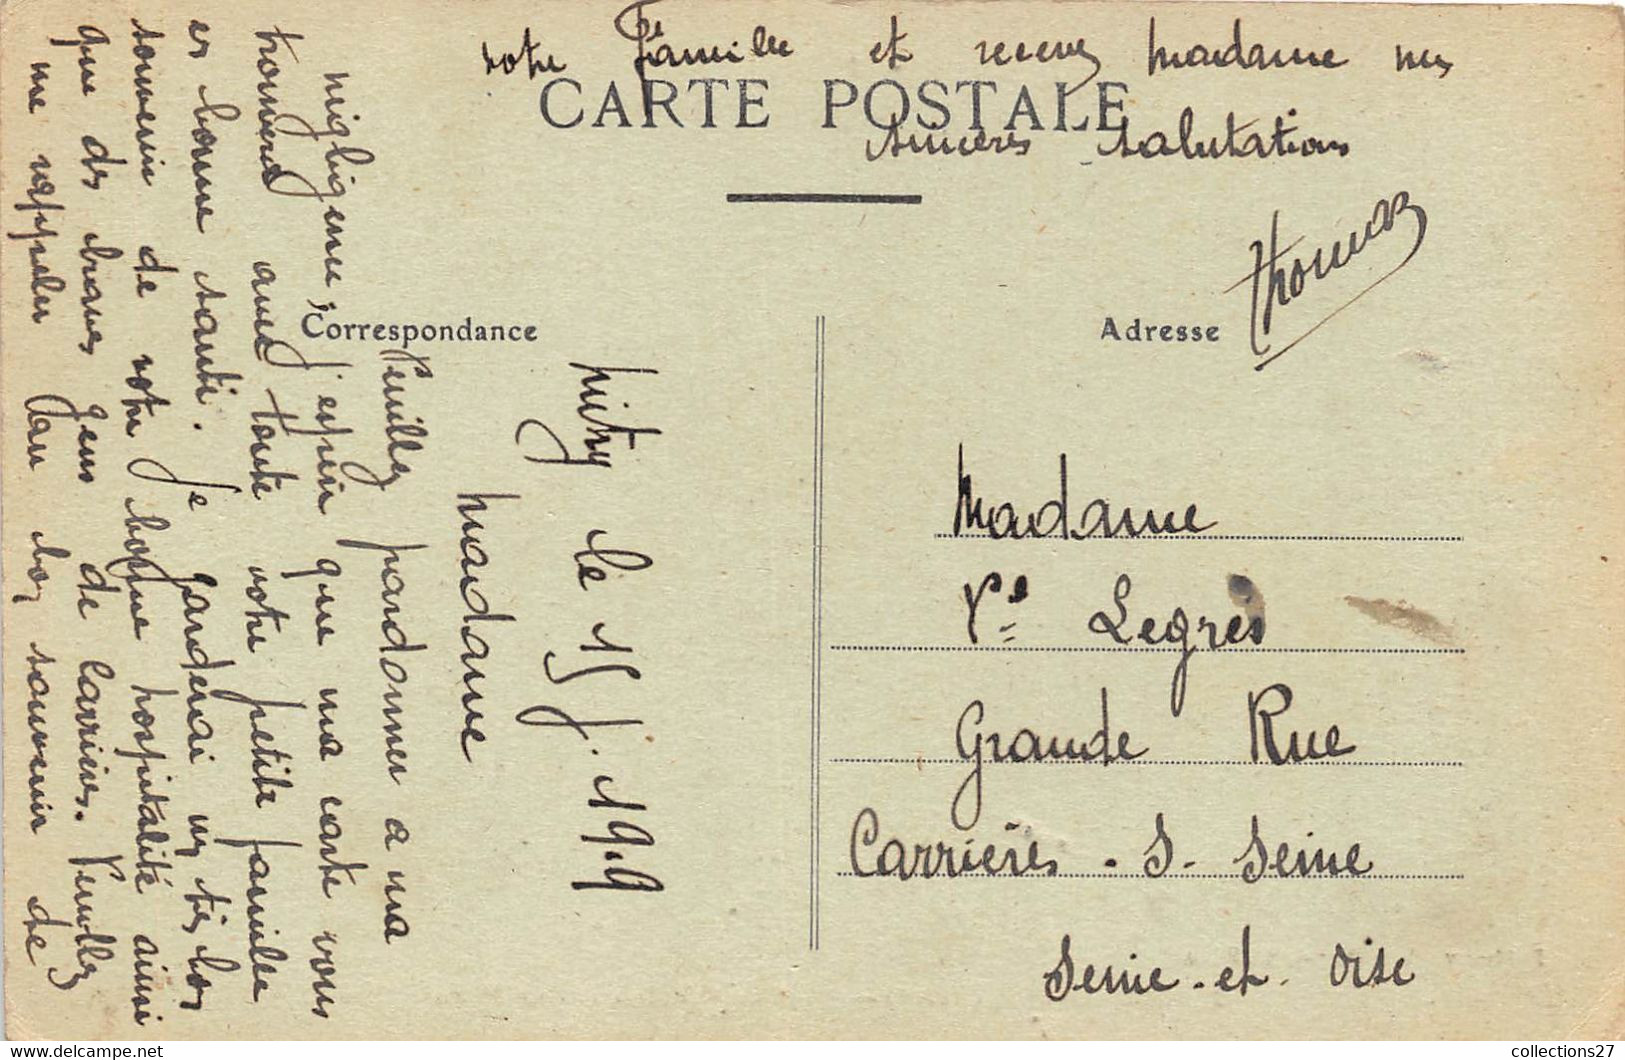 CARTE POSTALE
Correspondance
Adresse
Mitry le 15 J. 1919
Madame
Veuillez pardonner a ma
négligence, j'espère que ma carte vous
trouvera ainsi toute votre petite famille
en bonne santé. Je garderai un très bon
souvenir de votre bonne hospitalité ainsi
que des braves gens de Carrières. Veuillez
me rappeler au bon souvenir de
votre famille et recevez Madame mes
sincères salutations
Thomas
Madame
Ve Legres
Grande Rue
Carrieres . S. Seine
Seine - et - Oise
collections27